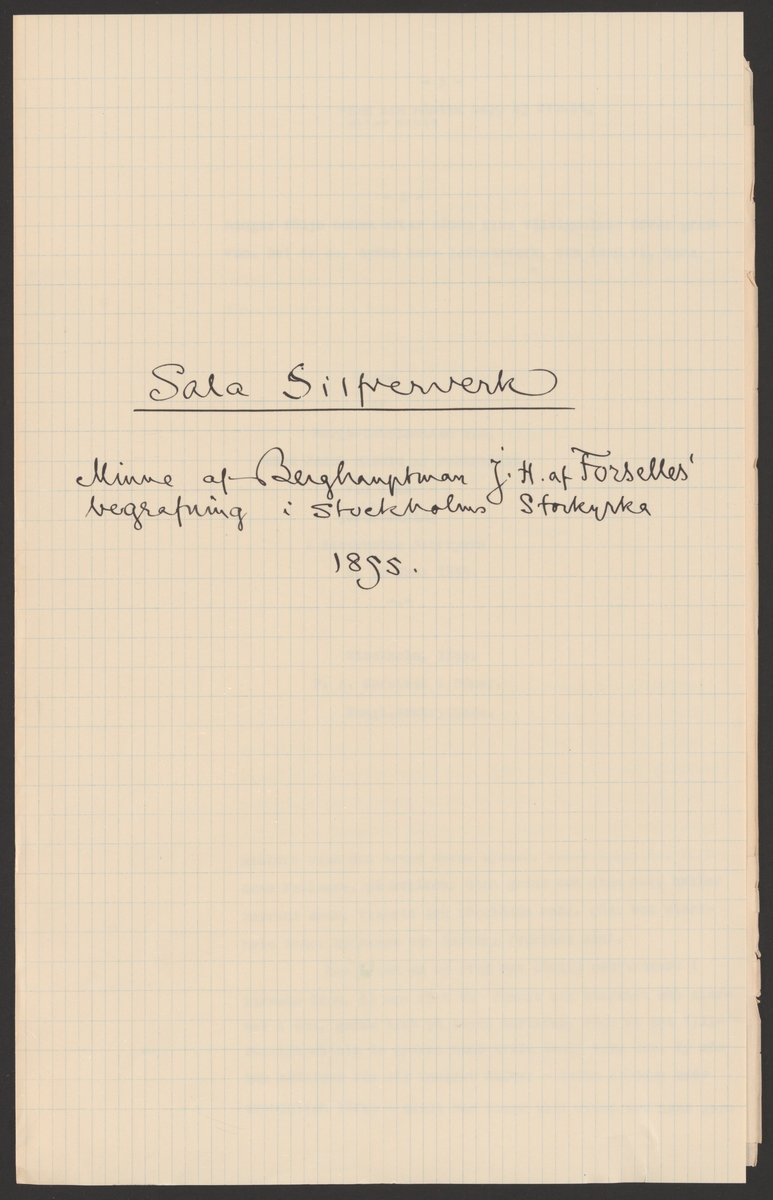 Sala Silfververk
Minne af Berghauptman J. H. af Forselles'
begrafning i Stockholms Storkyrka
1855.